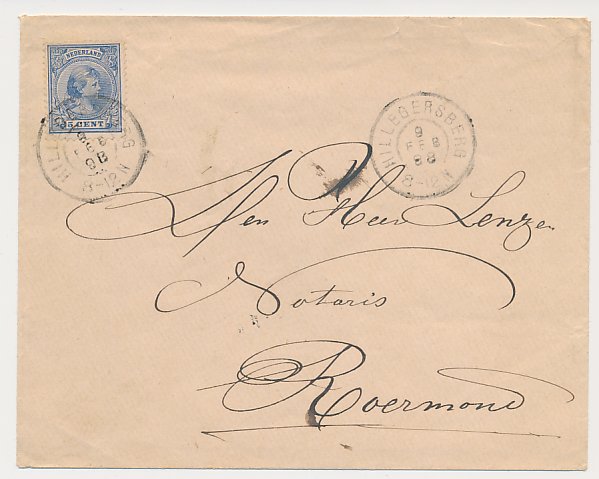 NEDERLAND
5 CENT
HILLEGERSBERG
9
FEB
8-12N
HILLEGERSBERG
9
FEB
98
8-12N
Den Heer Lenzen
Notaris
Roermond